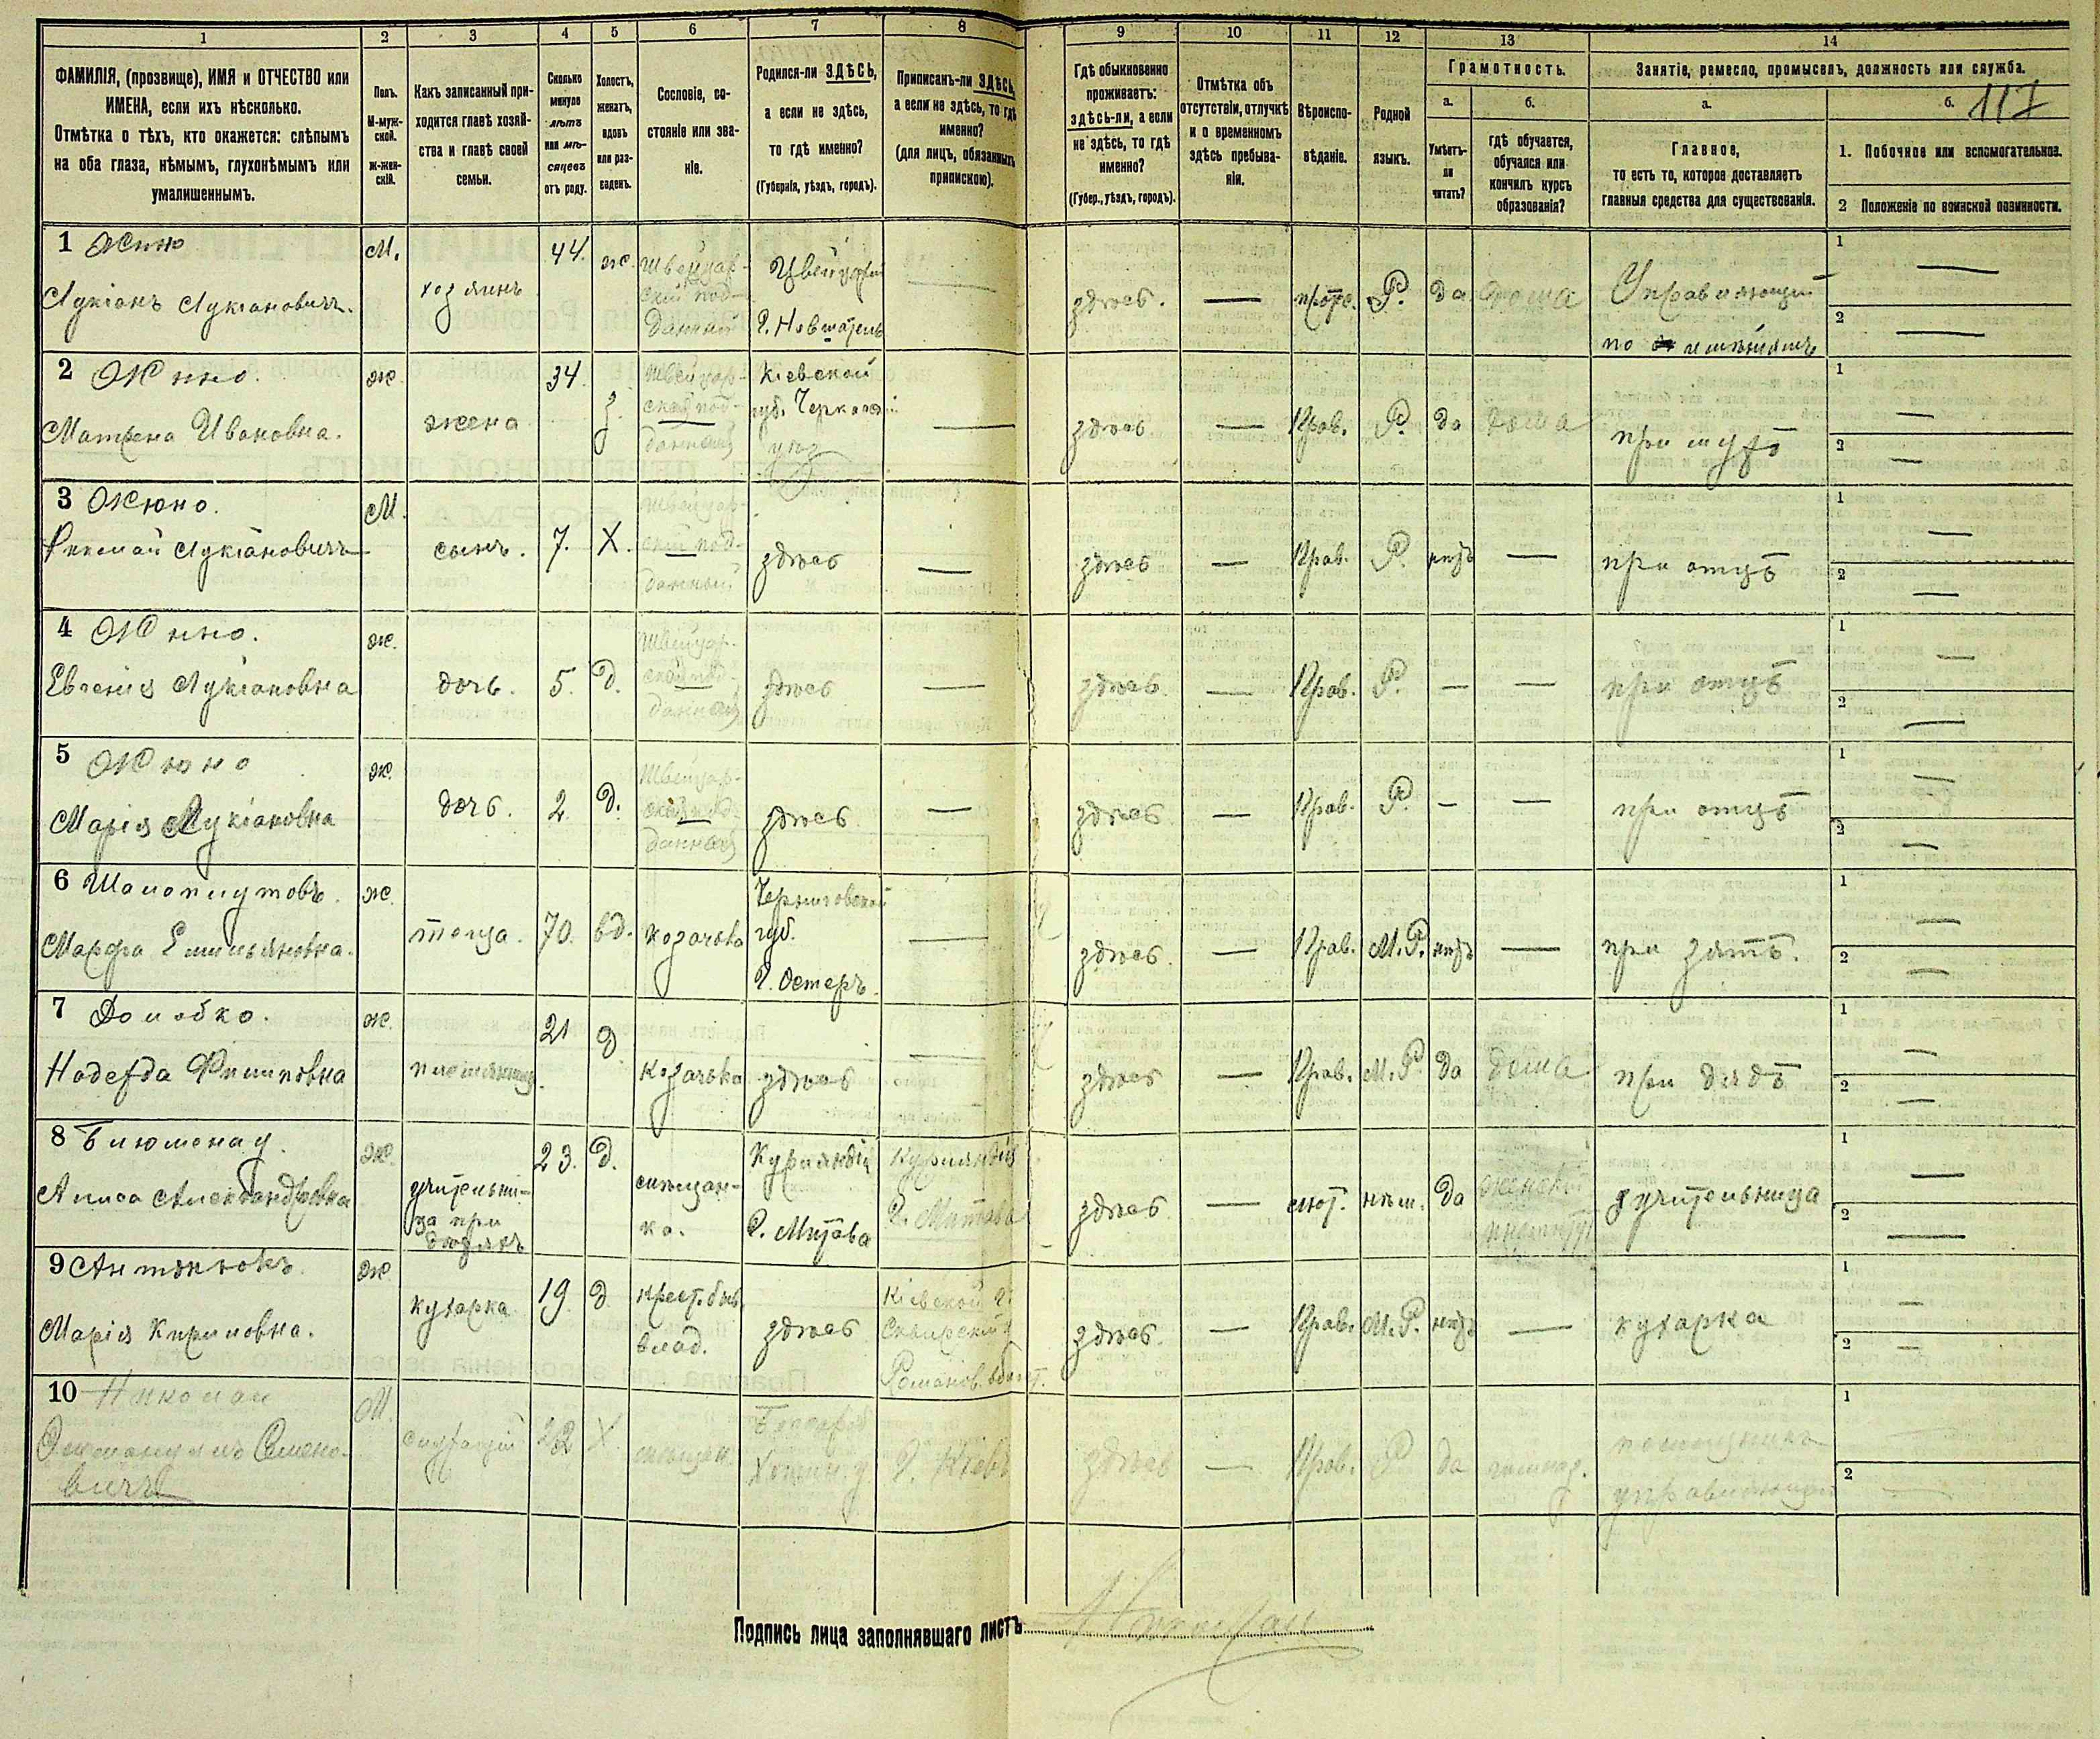 1 2 3 4 5 6 7 8 9 10 11 12 13 14
ФАМИЛІЯ, (прозвище), ИМЯ и ОТЧЕСТВО или
ИМЕНА, если ихъ нѣсколько.
Отмѣтка о тѣхъ, кто окажется: слѣпымъ
на оба глаза, нѣмымъ, глухонѣмымъ или
умалишеннымъ.
Полъ.
М-муж-
ской.
ж-жен-
скій.
Какъ записанный при-
ходится главѣ хозяй-
ства и главѣ своей
семьи.
Сколько
минуло
лѣтъ
или мѣ-
сяцевъ
отъ роду.
Холостъ,
женатъ,
вдовъ
или раз-
веденъ.
Сословіе, со-
стояніе или зва-
ніе.
Родился-ли ЗДѢСЬ,
а если не здѣсь,
то гдѣ именно?
(Губернія, уѣздъ, городъ).
Приписанъ-ли ЗДѢСЬ,
а если не здѣсь, то гдѣ
именно?
(для лицъ, обязанныхъ
припискою).
Гдѣ обыкновенно
проживаетъ:
здѣсь-ли, а если
не здѣсь, то гдѣ
именно?
(Губер., уѣздъ, городъ).
Отмѣтка объ
отсутствіи, отлучкѣ
и о временномъ
здѣсь пребыва-
ніи.
Вѣроиспо-
вѣданіе.
Родной
языкъ.
Грамотность.
а.
Умѣетъ-
ли
читать?
б.
гдѣ обучается,
обучался или
кончилъ курсъ
образованія?
Занятіе, ремесло, промыселъ, должность или служба.
а.
Главное,
то есть то, которое доставляетъ
главныя средства для существованія.
б. 117
1. Побочное или вспомогательное.
2 Положеніе по воинской повинности.
1 Жюно
Лукіанъ Лукіановичъ.
М.
хозяинъ
44.
ж.
Швейцар-
скій под-
данный
Швейцарія
г. Невшатель
здѣсь.
прот.
Р.
да
дома
Управляющій
по имѣніямъ
1
2
2 Жюно.
Матрена Ивановна.
ж
жена
34.
з.
Швейцар-
ская под-
данная
Кіевской
губ. Черкасск
уѣз
здѣсь
Прав.
Р.
да
дома
при мужѣ
1
2
3 Жюно.
Николай Лукіановичъ
М.
сынъ.
7.
Х.
Швейцар-
скій под-
данный
здѣсь
здѣсь
Прав.
Р.
нѣтъ
при отцѣ
1
2
4 Жюно.
Евгенія Лукіановна
ж.
дочь.
5.
д.
Швейцар-
ская под-
данная
здѣсь
здѣсь
Прав.
Р.
при отцѣ
1
2
5 Жюно
Марія Лукіановна
ж.
дочь.
2
д.
Швейцар-
ская под-
данная
здѣсь
здѣсь
Прав.
Р.
при отцѣ
1
2
6
Марфа Емильяновна.
ж.
теща.
70.
вд.
козачка
Черниговской
губ.
г. Остеръ.
здѣсь.
Прав.
М.Р.
нѣтъ
при зятѣ.
1
2
7
Надежда Филиповна
ж.
племянница.
21
д
козачка
здѣсь
здѣсь
Прав.
М.Р.
да
дома
при дядѣ
1
2
8
Алиса Александровна
ж.
учительни-
ца при
дѣтяхъ
23.
д.
мѣщан-
ка.
Курляндія
г. Митава
Курляндія
г. Митава
здѣсь
лют.
нѣм.
да
женскій
институт
учительница
1
2
9 Антонюкъ
Марія Кириловна.
ж
кухарка
19
д
крест. быв.
влад.
здѣсь
Кіевской г.
Сквирскій у
Романов. волост.
здѣсь.
Прав.
М.Р.
нѣтъ
кухарка
1
2
10
Семено-
вичъ
М.
служащій
22
Х
мѣщан.
Хотин. у
г. Кіевъ
здѣсь
Прав.
Р
да
гимназ.
помощникъ
управляющаго
1
2
Подпись лица заполнявшаго листъ